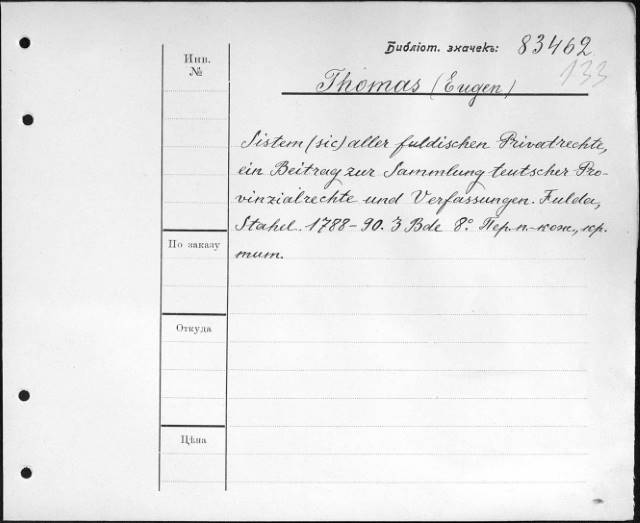 Библіот. значекъ: 83462
133
Инв.
№
Thomas (Eugen)
Sistem (sic) aller fuldischen Privatrechte,
ein Beitrag zur Sammlung teutscher Pro-
vinzialrechte und Verfassungen. Fulda,
Stahel. 1788-90. 3 Bde 8°. Пер. п.-кож., кр.
тит.
По заказу
Откуда
Цѣна